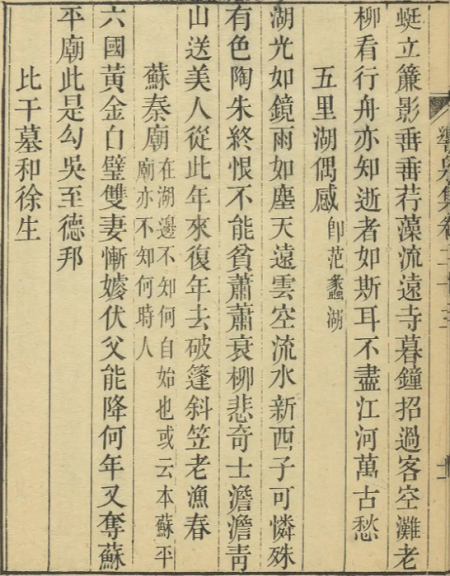 蜓立簾影垂垂荇藻流遠寺暮鐘招過客空灘老
柳看行舟亦知逝者如斯耳不盡江河萬古愁
五里湖偶感即范蠡湖
湖光如鏡雨如塵天遠雲空流水新西子可憐殊
有色陶朱終恨不能貧蕭蕭衰柳悲奇士澹澹靑
山送美人從此年來復年去破篷斜笠老漁春
蘇秦廟在湖邊不知何自始也或云本蘇平
廟亦不知何時人
六國黃金白璧雙妻慚嫂伏父能降何年又奪蘇
平廟此是勾吳至德邦
比干墓和徐生